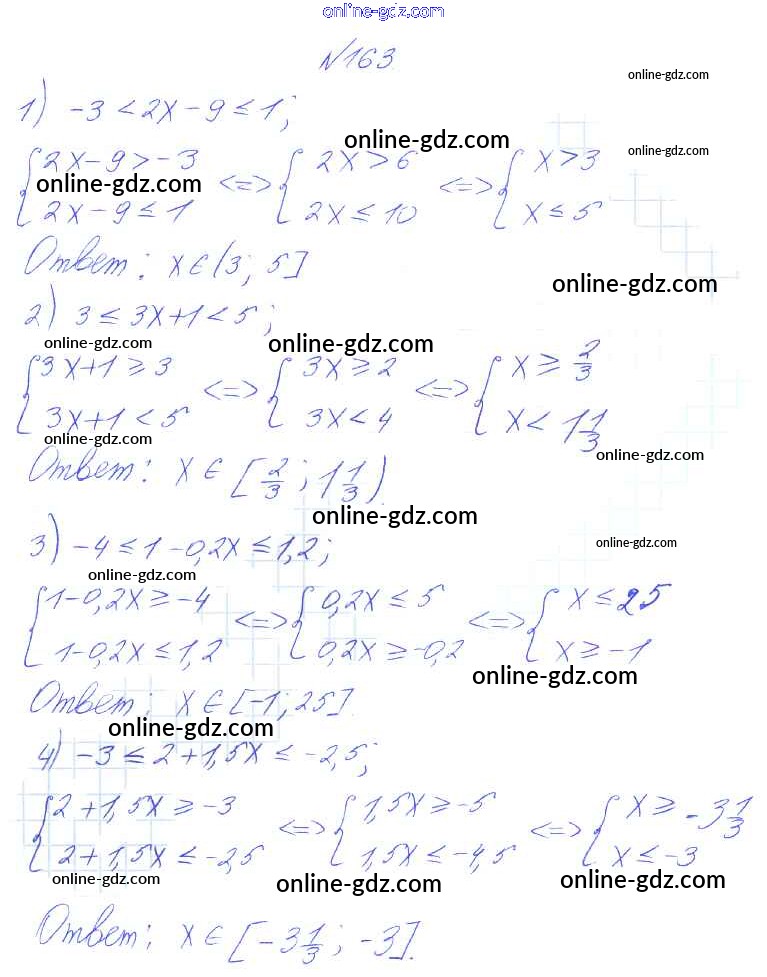 online-gdz.com
№163
online-gdz.com
1) -3 < 2x - 9 ≤ 1;
online-gdz.com
online-gdz.com
{ 2x - 9 > -3 <=> { 2x > 6 <=> { x > 3
online-gdz.com
2x - 9 ≤ 1 2x ≤ 10 x ≤ 5
Ответ: x ∈ (3; 5]
online-gdz.com
2) 3 ≤ 3x + 1 < 5;
online-gdz.com
online-gdz.com
{ 3x + 1 ≥ 3 <=> { 3x ≥ 2 <=> { x ≥ 2/3
3x + 1 < 5 3x < 4 x < 1 1/3
online-gdz.com
online-gdz.com
Ответ: x ∈ [2/3; 1 1/3)
online-gdz.com
3) -4 ≤ 1 - 0,2x ≤ 1,2;
online-gdz.com
online-gdz.com
{ 1 - 0,2x ≥ -4 <=> { 0,2x ≤ 5 <=> { x ≤ 25
1 - 0,2x ≤ 1,2 0,2x ≥ -0,2 x ≥ -1
online-gdz.com
Ответ: x ∈ [-1; 25].
online-gdz.com
4) -3 ≤ 2 + 1,5x ≤ -2,5;
{ 2 + 1,5x ≥ -3 <=> { 1,5x ≥ -5 <=> { x ≥ -3 1/3
2 + 1,5x ≤ -2,5 1,5x ≤ -4,5 x ≤ -3
online-gdz.com
online-gdz.com
online-gdz.com
Ответ: x ∈ [-3 1/3; -3].